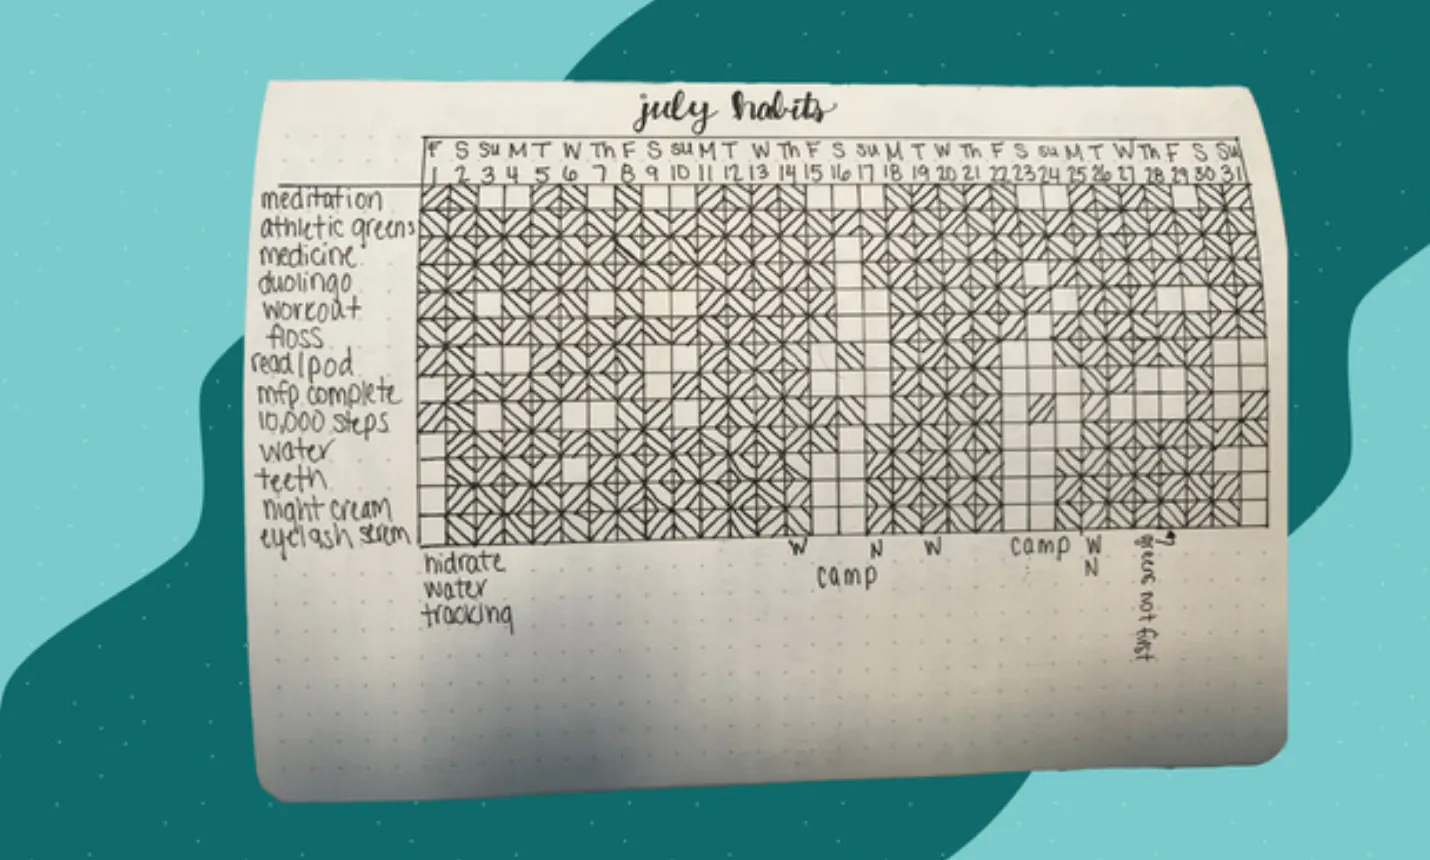 july habits
F S Su M T W Th F S Su M T W Th F S Su M T W Th F S Su M T W Th F S Su
1 2 3 4 5 6 7 8 9 10 11 12 13 14 15 16 17 18 19 20 21 22 23 24 25 26 27 28 29 30 31
meditation
athletic greens
medicine
duolingo
workout
floss
read/pod
mfp complete
10,000 steps
water
teeth
night cream
eyelash serem
W N W camp W
camp N
hidrate
water
tracking
greens not first